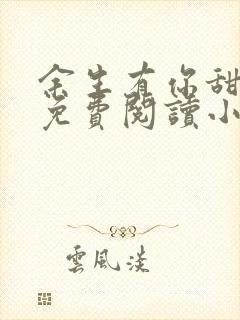 余生有你甜
免費閱讀小
雲風淡